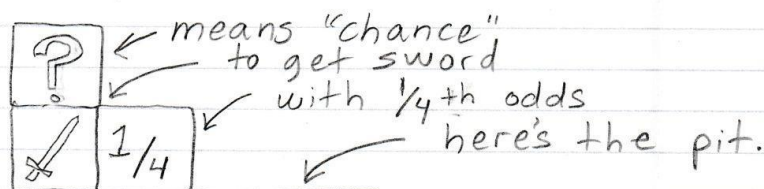 ? means "chance"
to get sword
with 1/4th odds
1/4 here's the pit.